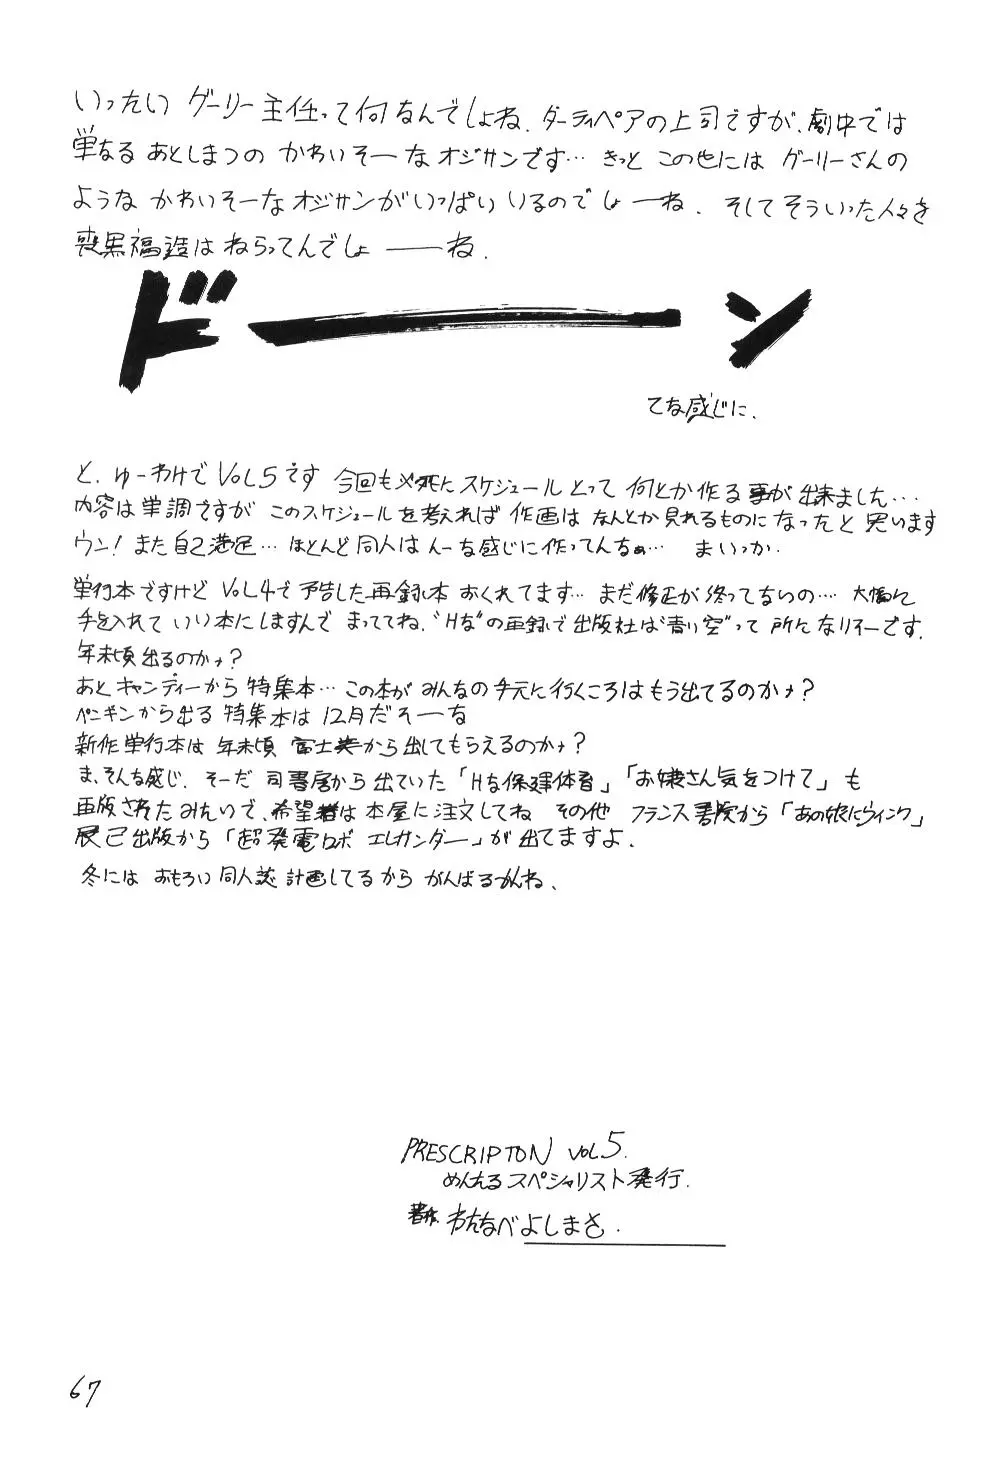 いったい グーリー主任って何なんでしょね. ダーティペアの上司ですが、劇中では
単なる あとしまつの かわいそーな オジサンです… きっと この他には グーリーさんの
ような かわいそーな オジサンがいっぱい いるのでしょーね. そしてそういった人々を
喪黒福造は ねらってんでしょーーね.
ドーン
てな感じに.
と、ゆーわけで VOL5です 今回も必死に スケジュール とって 何とか作る事が出来ました…
内容は単調ですが このスケジュールを考えれば 作画は なんとか見れるものになったと思います
ウン! また自己満足… ほとんど同人は んーな感じに作ってんなぁ… まいっか.
単行本ですけど VOL4で予告した再録本 おくれてます… まだ修正が終ってないの… 大幅に
手を入れて いい本にしますんで まっててね. "Hな"の再録で出版社は"青い空"って 所になりそーです.
年末頃出るのかナ?
あと キャンディーから 特集本… この本が みんなの手元に行くころはもう出てるのかナ?
ペンギンから出る 特集本は 12月だそーな
新作単行本は 年末頃 富士美から出してもらえるのかナ?
ま、そんな感じ. そーだ 司書房から出ていた「Hな保健体育」「お嬢さん気をつけて」も
再版されたみたいで、希望者は本屋に注文してね その他 フランス書院から「あの娘にウィンク」
辰己出版から「超発電ロボ エレガンダー」が出てますよ.
冬には おもろい同人誌計画してるから がんばるかんね、
PRESCRIPTON VOL5.
めんたるスペシャリスト発行.
著作. わたなべよしまさ.
67